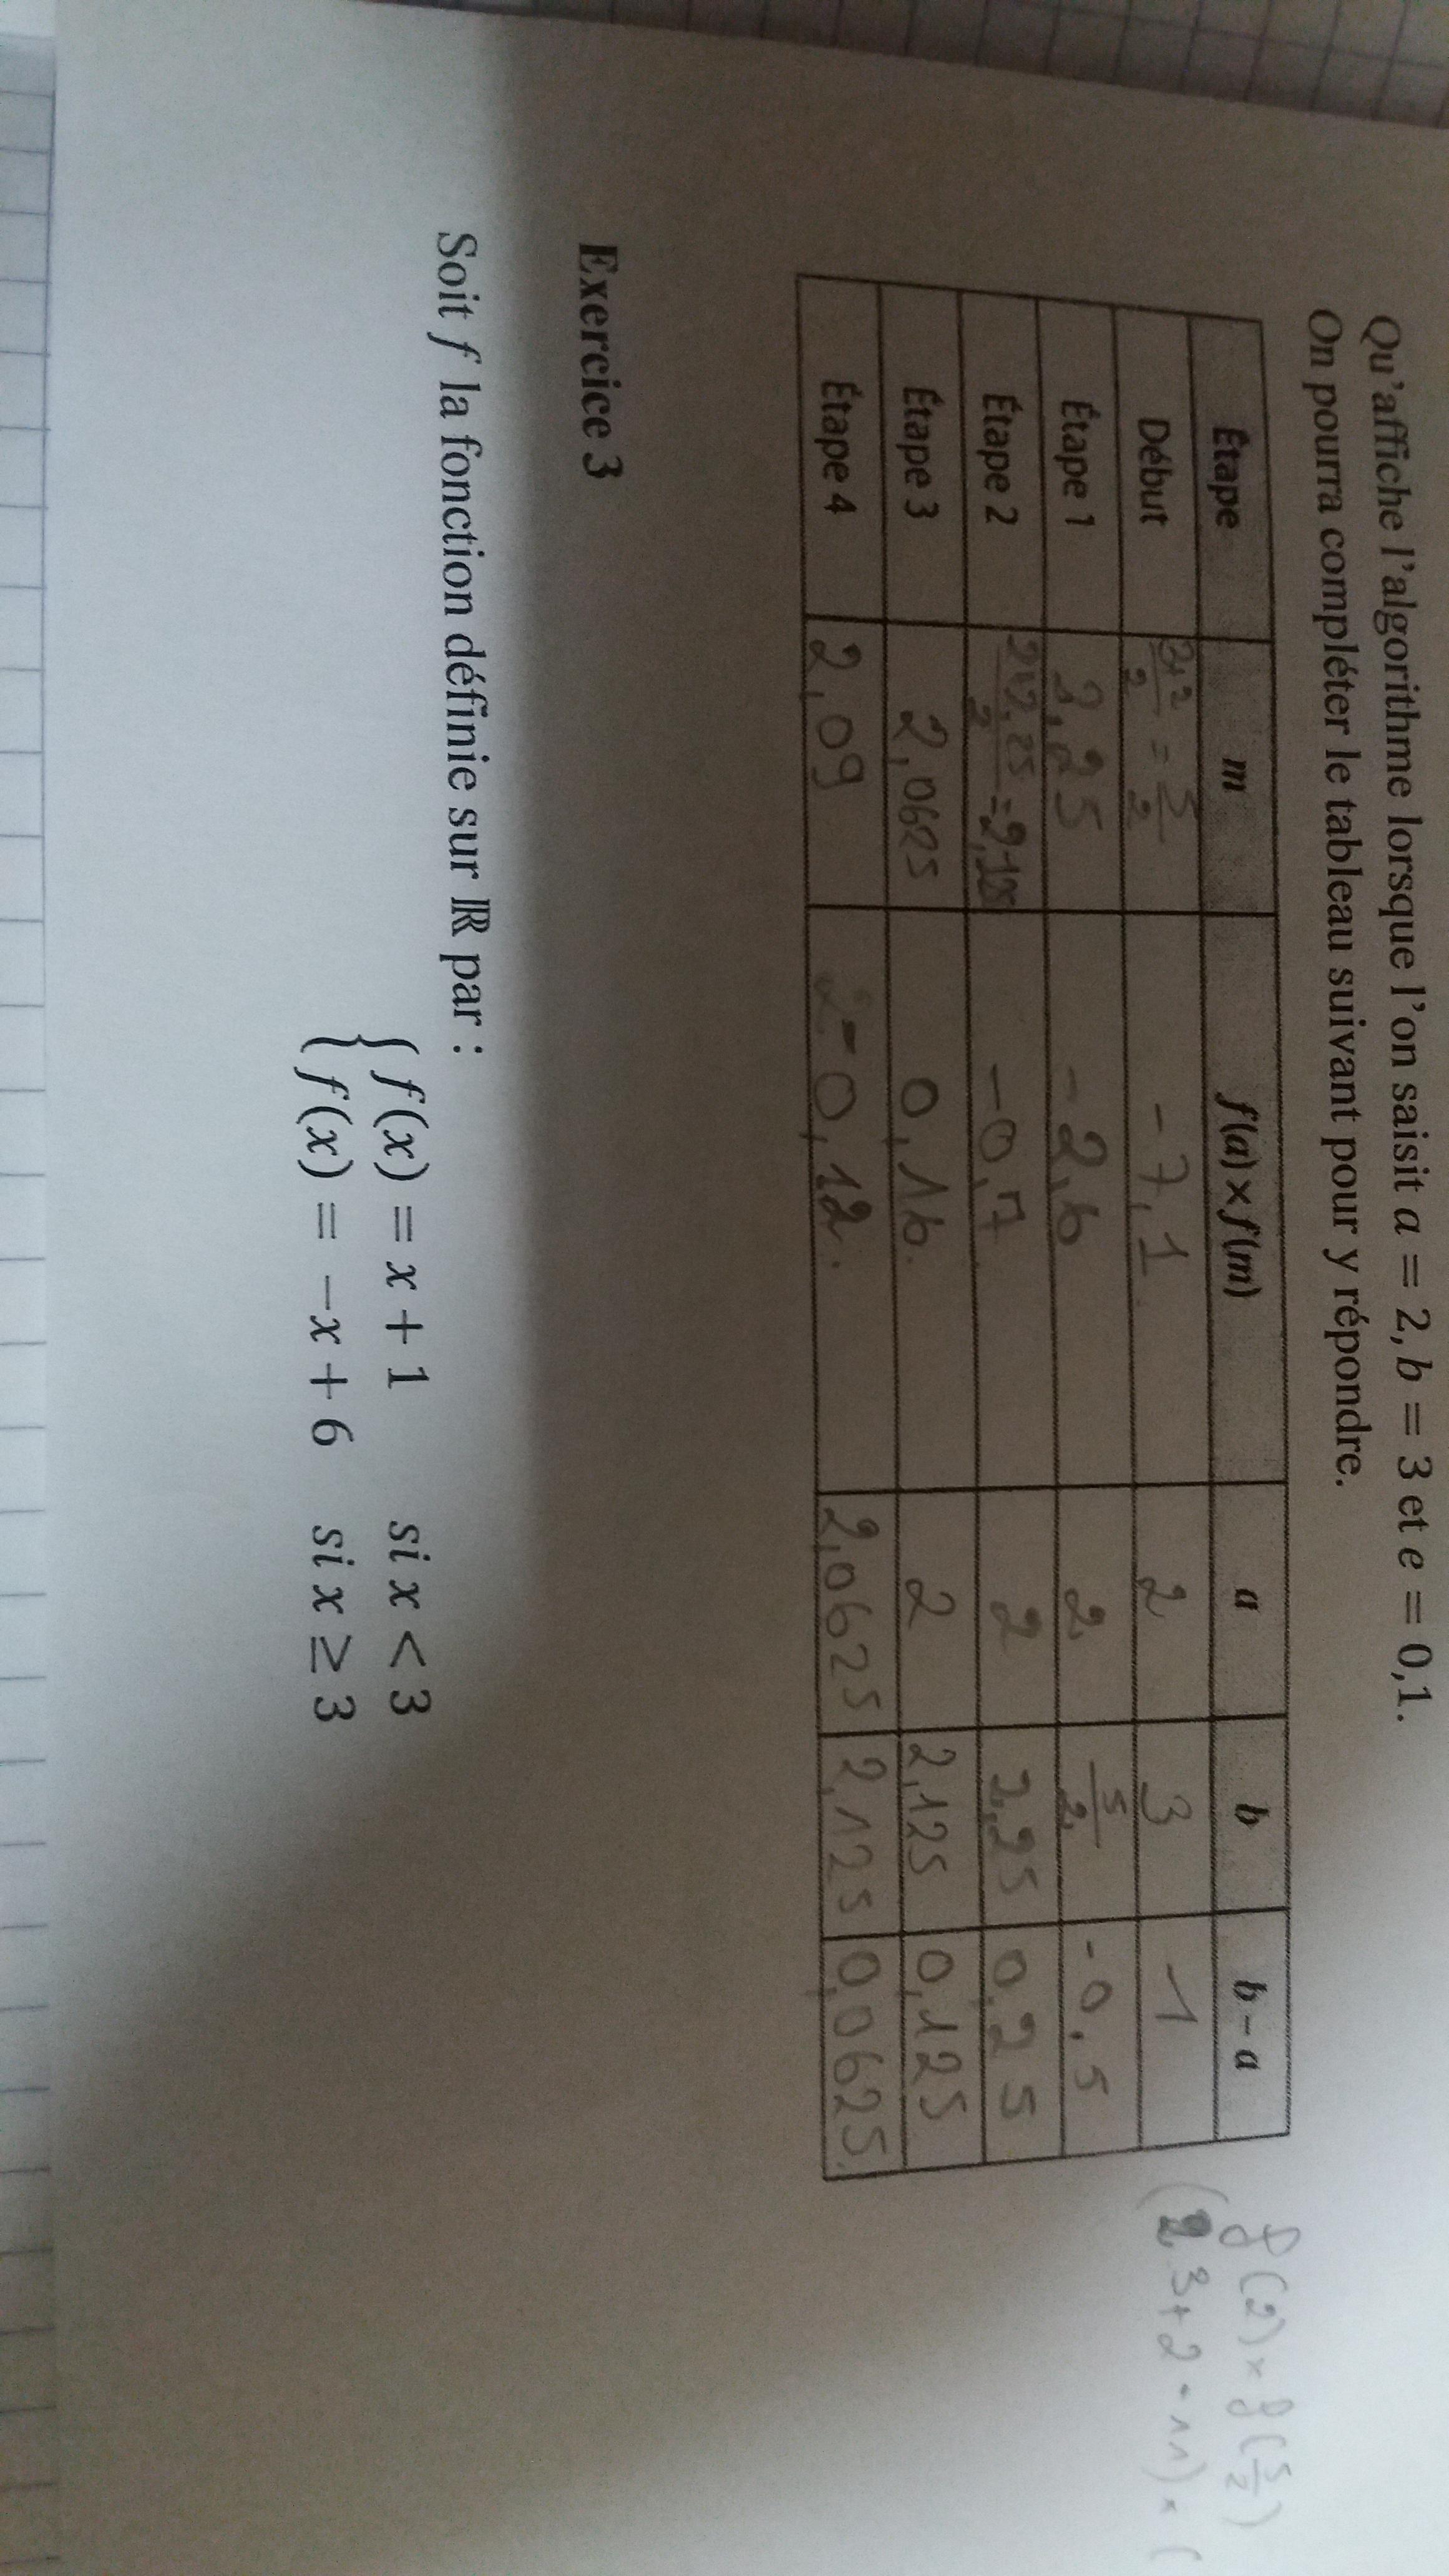 Qu'affiche l'algorithme lorsque l'on saisit a = 2, b = 3 et e = 0,1.
On pourra compléter le tableau suivant pour y répondre.
Étape m f(a)×f(m) a b b−a
Début 3+2/2 = 5/2 -7,1 2 3 -1
Étape 1 2,25 -2,6 2 5/2 -0,5
Étape 2 2+2,25/2 = 2,125 -0,7 2 2,25 0,25
Étape 3 2,0625 0,16 2 2,125 0,125
Étape 4 2,09 -0,12 2,0625 2,125 0,0625
f(2) × f(5/2)
(2 3+2 - 11) × (
Exercice 3
Soit f la fonction définie sur ℝ par :
{ f(x) = x + 1 si x < 3
{ f(x) = −x + 6 si x ≥ 3